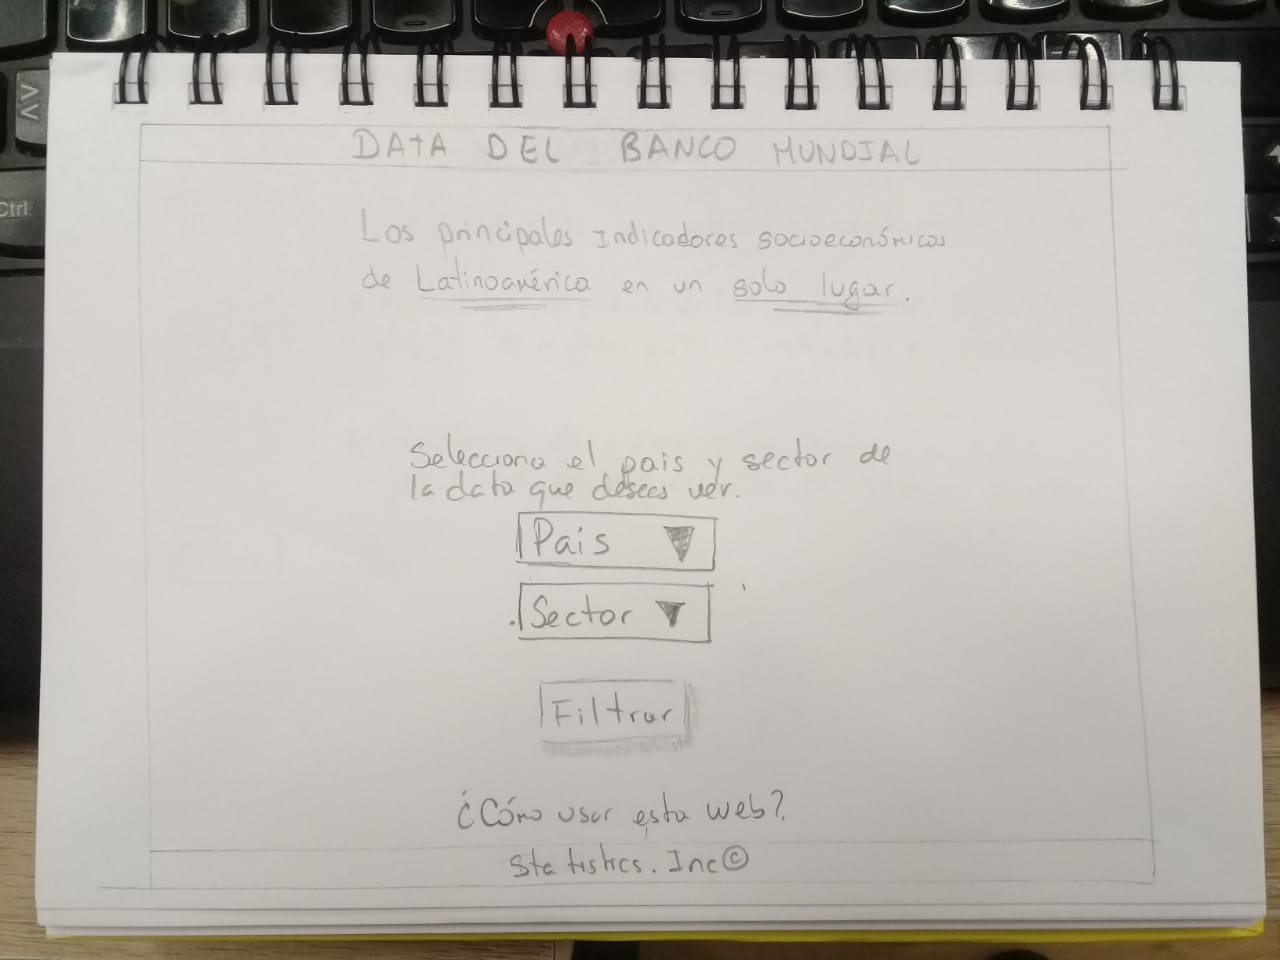 DATA DEL BANCO MUNDIAL
Los principales Indicadores socioeconómicos
de Latinoamérica en un solo lugar.
Selecciona el pais y sector de
la data que desees ver.
Pais
Sector
Filtrar
¿Cómo usar esta web?
Statistics. Inc©
Ctrl